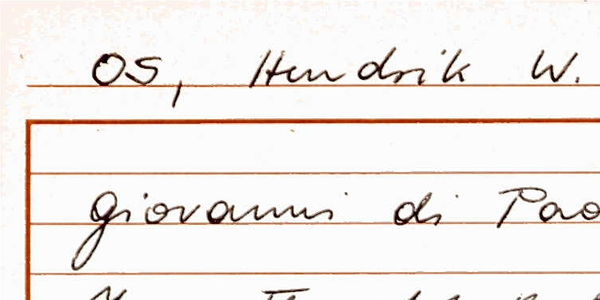 OS, Hendrik W.
Giovanni di Pao